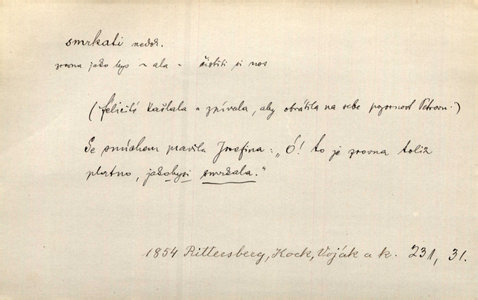 smrkati nedok.
zrovna jako bys ~ ala - čistiti si nos
(Felicitá kašlala a zpívala, aby obrátila na sebe pozornost Petrovu.)
Se smíchem pravila Josefina: „Ó! to je zrovna tolik
platno, jakobysi smrkala."
1854 Rittersberg, Hock, Voják a k. 231, 31.